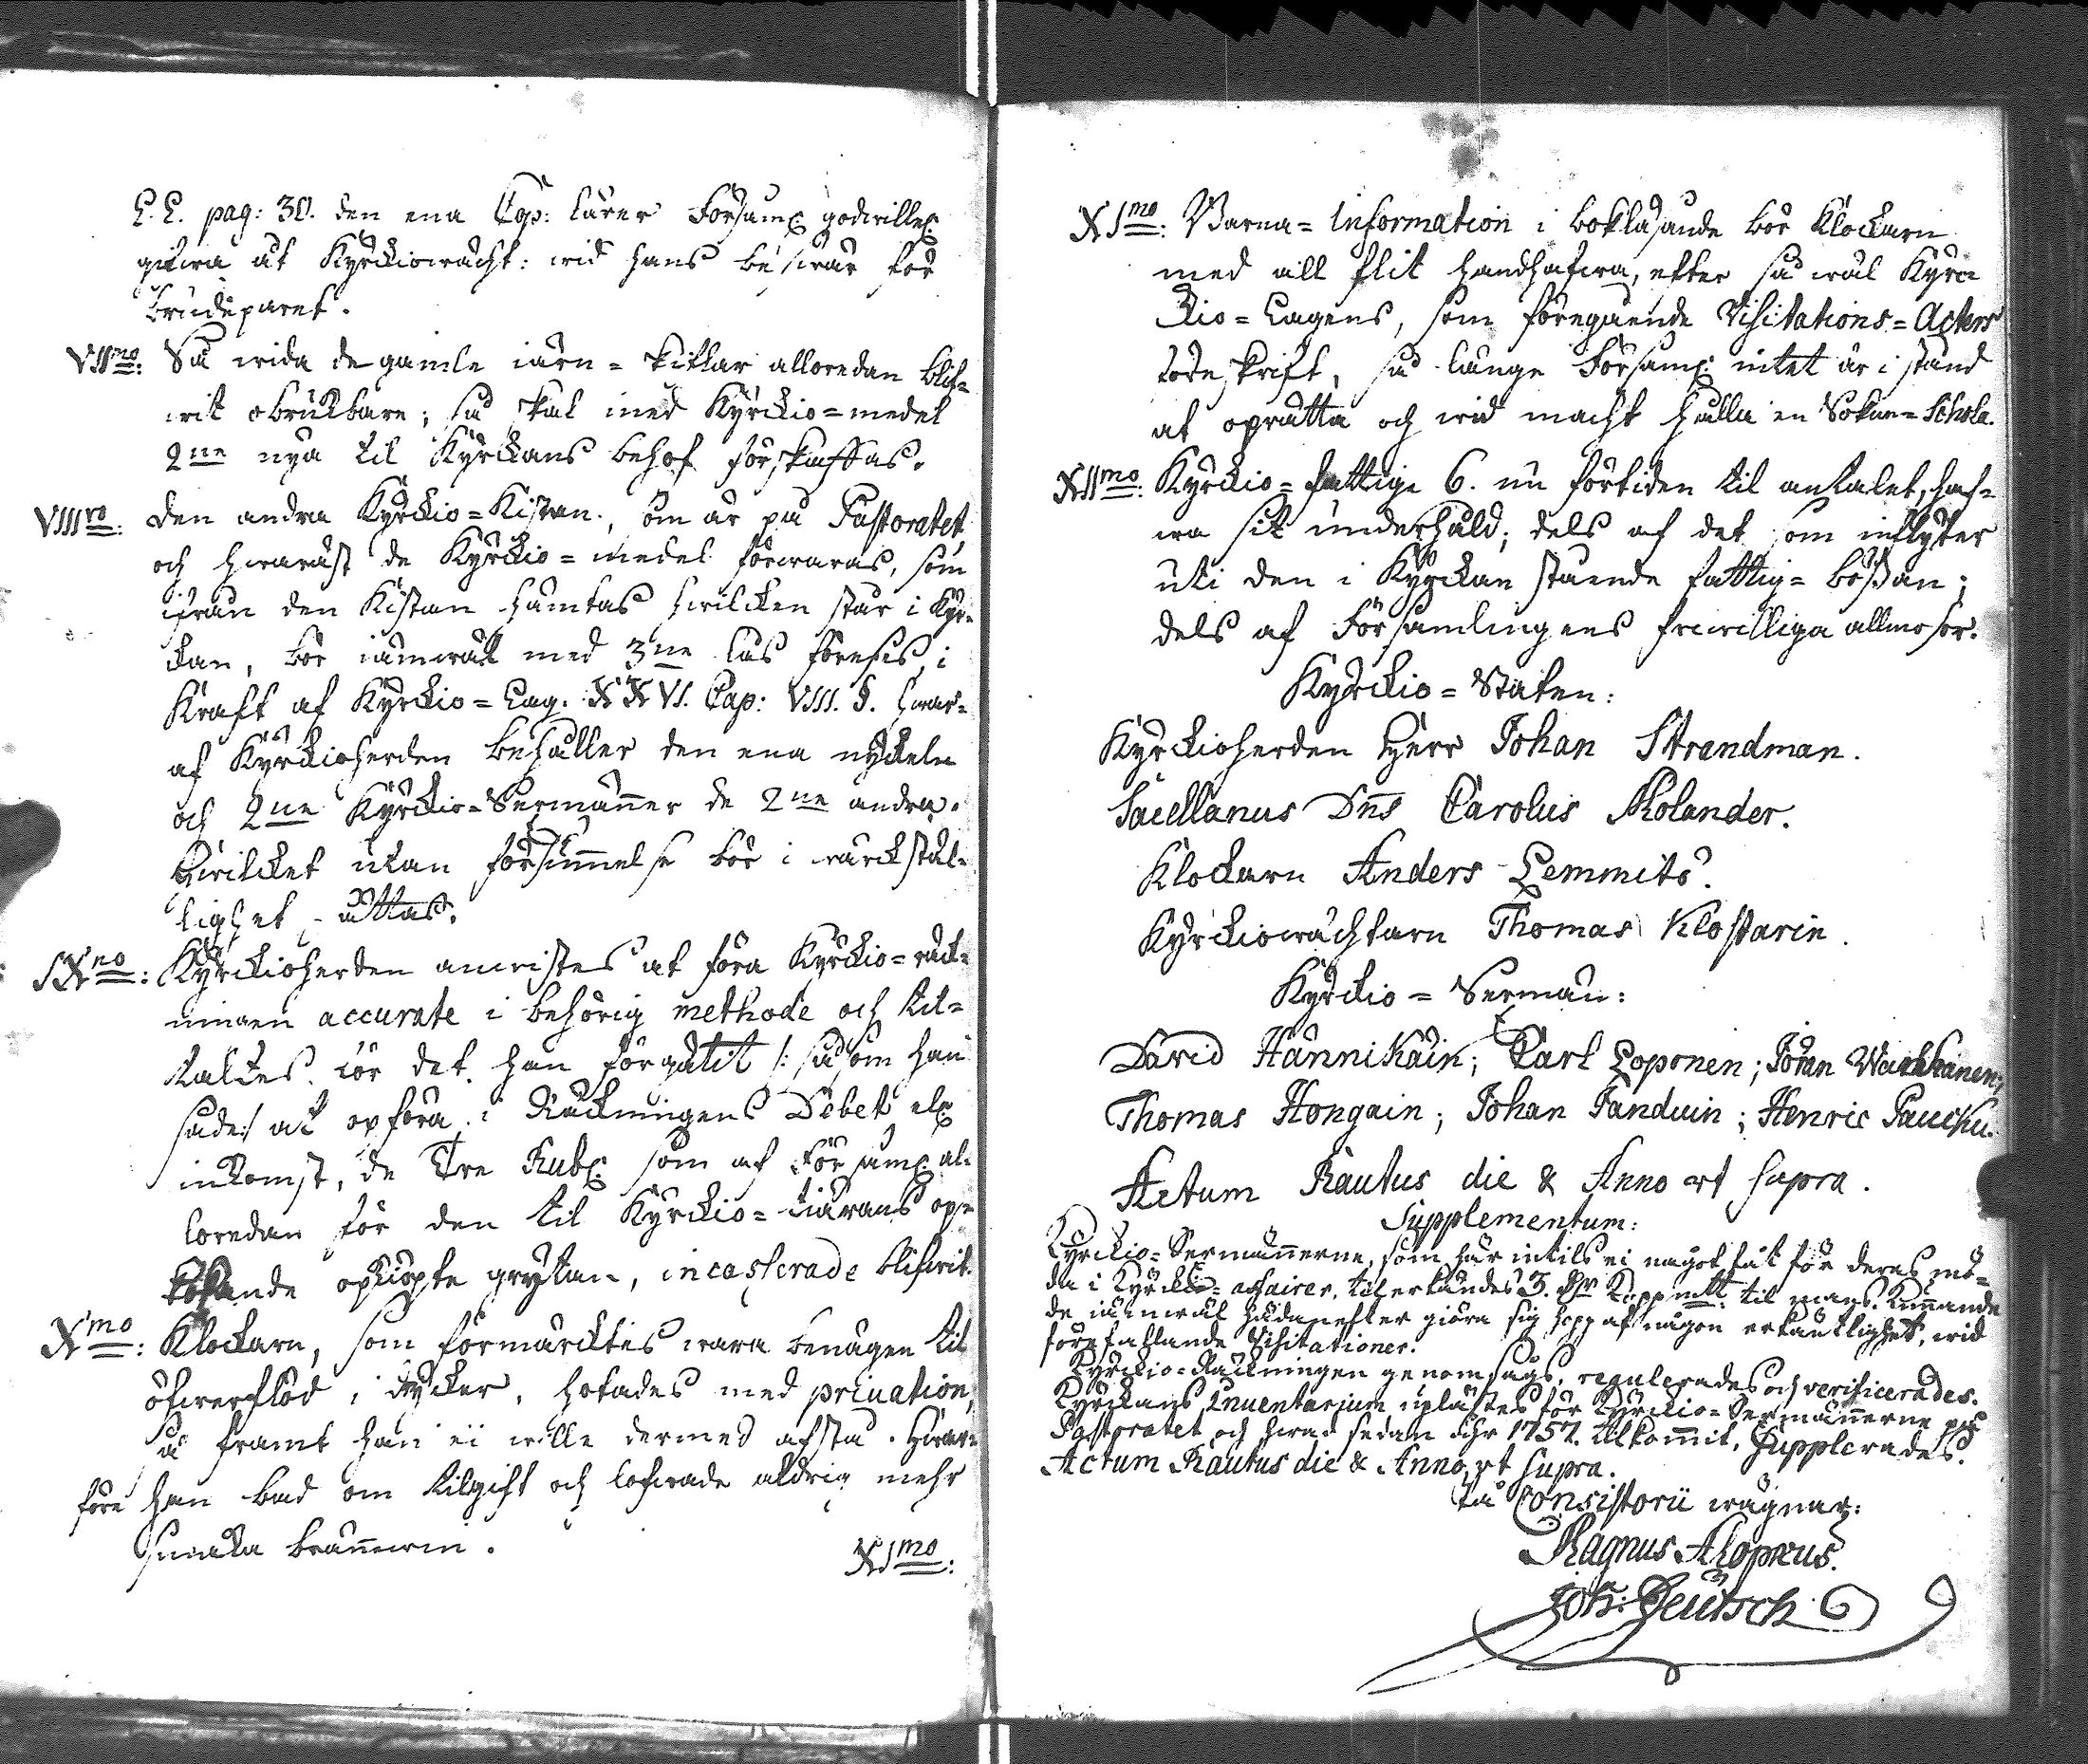 E. E. pag: 30. den ena Cop: lärer Församl: godwillel:
gifwa åt Kyrckiowächt: wid hans beswär för
brudeparet.
VIImo: Så wida de gamle iärn=skiflar alloredan blif=
wit obrukbare; så skal med Kyrckio=medel
2ne nya til Kyrckans behof förskaffas.
VIIIvo: Den andra Kyrckio=Kistan, som är på Pastoratet
och hwaräst de Kyrckio=medel förwaras, som
ifrån den Kistan hämtas hwilcken står i Kyr=
ckan, bör jämwäl med 3ne lås förses, i
Kraft af Kyrckio=Lag. XXVI. Cap: VIII. §. hwar=
af Kyrckioherden behåller den ena nyckeln
och 2ne Kyrckio=Sexmänner de 2ne andra.
Hwilcket utan försummelse bör i wärckstäl=
lighet sättas.
IXno: Kyrckioherden anwistes at föra Kyrckio=räck=
ningen accurate i behörig methode och til=
taltes för det han förgätit /: såsom han
sade:/ at opföra i Räckningens Debet el:
inkomst, de Tre Rubl: som af Församl: al=
loredan för den til Kyrckio=tiärans op=
kokande opkiöpte grytan, incasserade blifwit.
Xmo: Klockarn, som förmärcktes wara benägen til
öfwerflöd i drycker, hotades med privation,
så framt han ei wille dermed afstå. Hwar=
före han bad om tilgift och lofwade aldrig mehr
smaka brännwin.
XImo:
XImo: Barna=Information i bokläsande bör Klockarn
med all flit handhafwa, efter så wäl Kyrc
kio=Lagens, som föregående Visitations=Acters
föreskrift, så länge Församl: intet är i stånd
at oprätta och wid macht hålla en Sokne=Schola.
XIImo: Kyrckio=fattige 6. nu förtiden til antalet, haf=
wa sit underhåld; dels af det som inflyter
uti den i Kyrckan stående fattig=bössan;
dels af Församlingens friwilliga allmosor.
Kyrckio=Staten:
Kyrckioherden Herr Johan Strandman.
Sacellanus Dns Carolus Molander.
Klockarn Anders Lemmitö.
Kyrckiowächtarn Thomas Klostarin.
Kyrckio=Sexmän:
David Hännikäin; Carl Loponen; Jöran Warkkanen;
Thomas Hongain; Johan Panduin; Henric Paucku.
Actum Rautus die & Anno ut supra.
Supplementum:
Kyrckio=Sexmännerne, som här intils ei något fåt för deras mö=
da i Kyrckio=affairer, tilerkändes 3. dlr Koppmtt: til mans. Kunnande
de iämwäl hädanefter giöra sig hopp af någon erkäntlighet, wid
förefallande Visitationer.
Kyrckio=Räckningen genomsågs, regulerades och verificerades.
Kyrckans Inventarium uplästes för Kyrckio=Sexmännerne på
Pastoratet och hwad sedan åhr 1757. tilkommit, supplerades.
Actum Rautus die & Anno ut supra.
På Consistorii wägnar:
Magnus Alopæus.
Joh: Deutsch